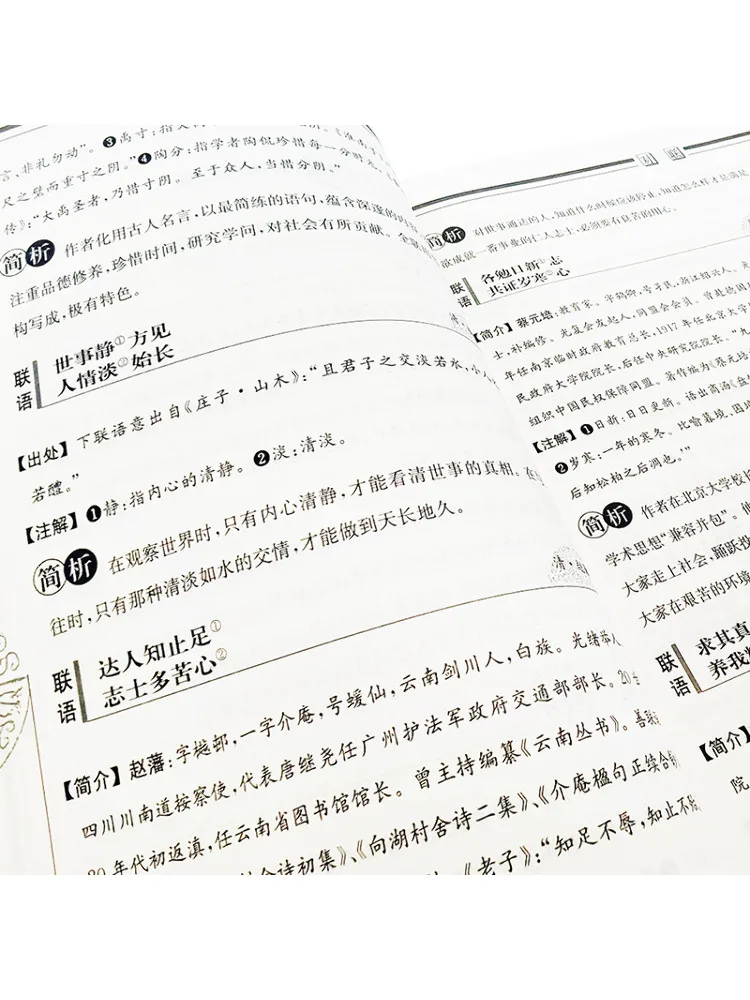 言，非礼勿动”。❸禹寸：指大
尺之璧而重寸之阴。”❹陶分：指学者陶侃珍惜每一分时光
传》：“大禹圣者，乃惜寸阴。至于众人，当惜分阴。”
简析 作者化用古人名言，以最简练的语句，蕴含深邃的
注重品德修养，珍惜时间，研究学问，对社会有所贡献。全
构写成，极有特色。
联语
世事静①方见
人情淡②始长
【出处】下联语意出自《庄子·山木》：“且君子之交淡若水，小人
若醴。”
【注解】❶静：指内心的清静。❷淡：清淡。
简析 在观察世界时，只有内心清静，才能看清世事的真相。在
往时，只有那种清淡如水的交情，才能做到天长地久。
清·
联语
达人知止足①
志士多苦心②
【简介】赵藩：字樾邨，一字介庵，号蝯仙，云南剑川人，白族。光绪举人
四川川南道按察使，代表唐继尧任广州护法军政府交通部部长。20
20年代初返滇，任云南省图书馆馆长。曾主持编纂《云南丛书》。善
村舍诗初集》、《向湖村舍诗二集》、《介庵楹句正续合
《老子》：“知足不辱，知止不殆
简析 对世事通达的人，知道什么时候应该停止，知道怎么样才是满足
欲成就一番事业的仁人志士，必须要有良苦的用心。
联语
各勉日新①志
共证岁寒②心
【简介】蔡元培：教育家。字鹤卿，号孑民，浙江绍兴人。
士，补编修。光复会发起人，同盟会会员。曾赴德国
年任南京临时政府教育总长，1917年任北京大学
民政府大学院院长，后任中央研究院院长。
组织中国民权保障同盟。著作编为《蔡元培
【注解】❶日新：日日更新。语出商汤《盘
❷岁寒：一年的寒冬。比喻暮境，困
后知松柏之后凋也。’”
简析 作者在北京大学校长
学术思想“兼容并包”。
大家走上社会，踊跃投
大家在艰苦的环境
联语
求其真
养我
【简介】
院